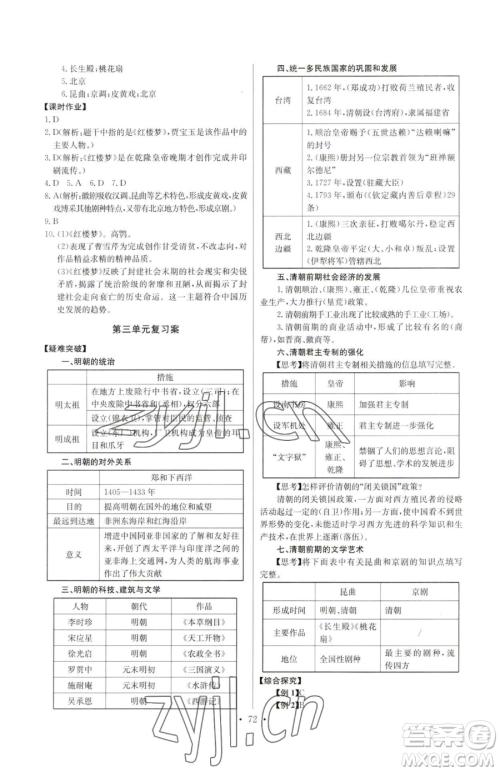 4. 长生殿;桃花扇
5. 北京
6. 昆曲;京调;皮黄戏;北京
【课时作业】
1. D
2. D(解析:题干中指的是《红楼梦》,贾宝玉是该书的主要人物。《红楼梦》是在乾隆皇帝晚期才创作完成并印刷流传。)
4. D 5. A 6. D 7. D
8. A(解析:徽剧吸收汉调、昆曲等艺术特色,形成皮黄戏,皮黄戏博采其他剧种特色,形成京剧。)
10. (1)《红楼梦》。高鹗。
(2)表明了曹雪芹为创作甘受清贫,不改志向,对作品精益求精的精神。
(3)《红楼梦》反映了封建社会末期的社会现实,揭露了统治阶级的奢侈、丑恶,表现了封建社会走向衰亡的历史命运。这一主题符合中国历史发展的趋势。
第三单元复习案
【疑难突破】
一、明朝的统治
措施
明太祖
在地方上废除行中书省,设立(三司);在中央废除中书省和(丞相),权分六部
设立(锦衣卫),掌管侍卫、缉捕、刑狱诸事
明成祖
设立(东厂)机构,与机构成为皇帝的耳目和爪牙
二、明朝的对外关系
郑和下西洋
时间 1405—1433年
目的 提高明朝在国外的地位和威望
最远到达地 非洲东海岸和红海沿岸
意义 增进中国同亚非国家的了解和友好往来,开创了西太平洋与印度洋之间的亚非海上交通网,为人类的航海事业作出了伟大贡献
三、明朝的科技、建筑与文学
人物 朝代 作品
李时珍 明朝 《本草纲目》
宋应星 明朝 《天工开物》
徐光启 明朝 《农政全书》
罗贯中 元末明初 《三国演义》
施耐庵 元末明初 《水浒传》
吴承恩 明朝 《西游记》
四、统一多民族国家的巩固和发展
台湾
1. 1662年,(郑成功)打败荷兰殖民者,收复台湾
2. 1684年,清朝设(台湾府),隶属福建省
西藏
1. 顺治皇帝赐予(五世达赖)“达赖喇嘛”
2. (康熙)册封另一位宗教首领为“班禅额尔德尼”
3. 1727年,设置(驻藏大臣)
4. 1793年,颁布(钦定藏内善后章程)29条)
西北边疆
1. (康熙)三次亲征,打败(噶尔丹)
2. (乾隆)皇帝平定大、小和卓叛乱,设置(伊犁将军)管辖西北
五、清朝前期社会经济的发展
1. 清朝顺治、(康熙)、雍正、(乾隆)皇帝,重视农业生产。
2. 清朝前期,出现了许多(手工)工场)。
六、清朝君主专制的强化
【思考】将清朝君主专制相关措施的信息填写完整。
措施 皇帝 影响
设南书房 康熙 加强君主专制
设军机处 雍正 君主专制进一步强化
“文字狱” 康熙、雍正、乾隆 禁锢了人们的思想,人们不敢过问政治,严重阻碍了思想、学术的发展
【思考】怎样评价清朝的“闭关锁国”政策?
清朝的闭关锁国政策,一方面对西方殖民者的侵略活动起了(自卫)作用。但是,另一方面,使中国看不到世界形势的变化,未能适时学习西方先进的科学知识和生产技术,在世界上逐渐(落伍)。
七、清朝前期的文学艺术
【思考】将下面表中有关昆曲和京剧的信息填写完整。
昆曲 京剧
形成时间 明朝、清朝 清朝
主要作品 《长生殿》《桃花扇》
地位 全国性剧种 影响最大的剧种
【综合探究】
【例1】C
【例2】B
72
zyjl.cn
zyjl.cn
答案圈
MXQE.COM